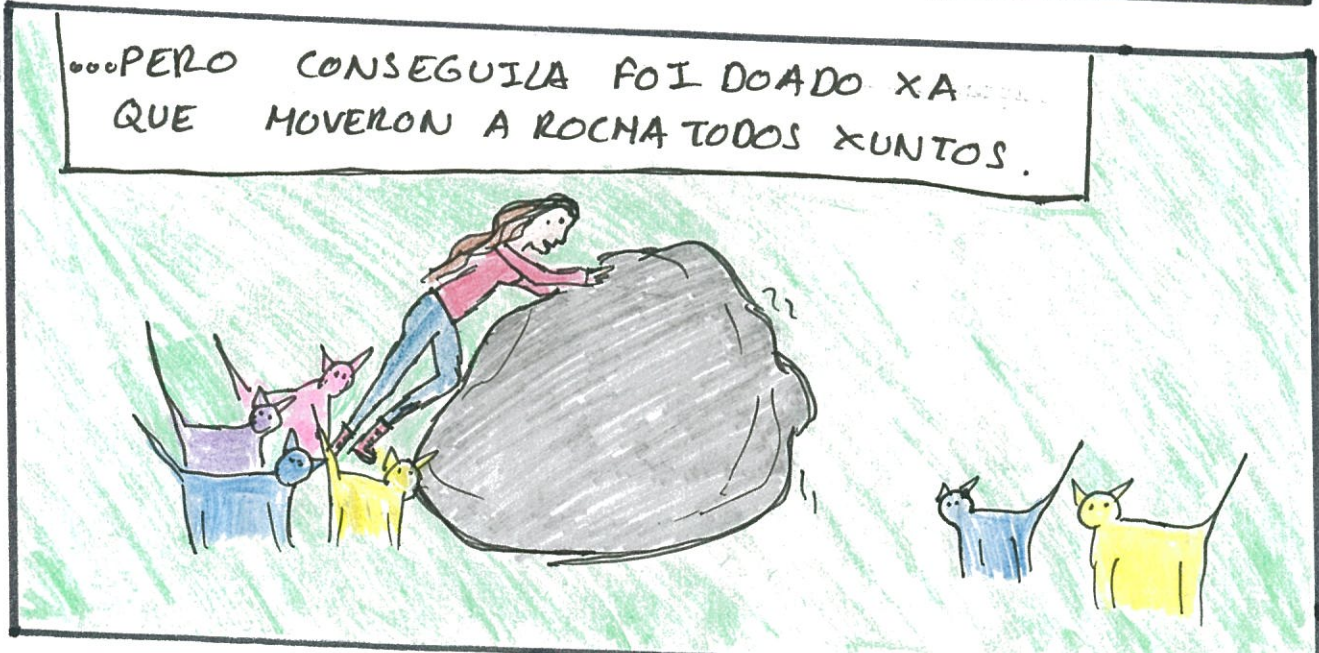 ...PERO CONSEGUILA FOI DOADO XA
QUE MOVERON A ROCHA TODOS XUNTOS.